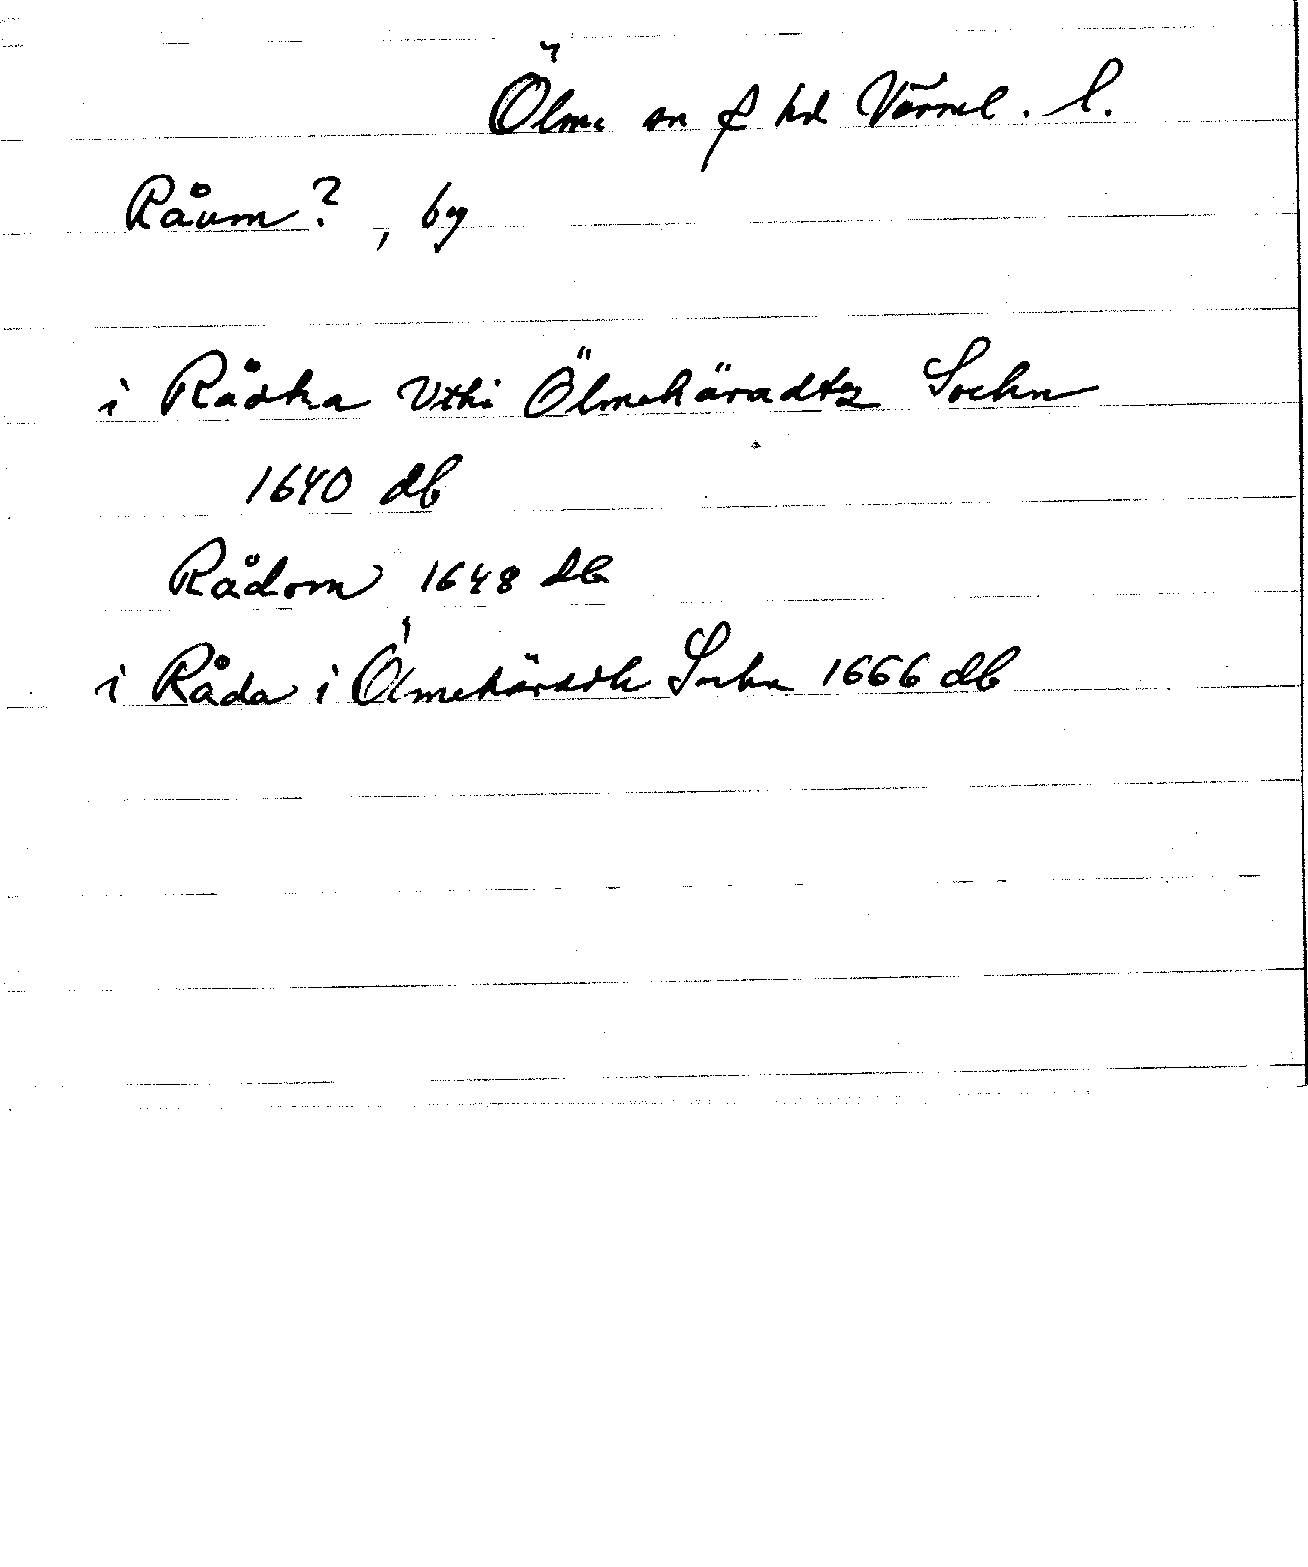 Ölme sn f hd Värml. l.
Råum?, by
i Rådha Vthi Ölmehäradtz Sochn
1640 db
Rådom 1648 db
i Råda i Ölmehäradh Sochn 1666 db